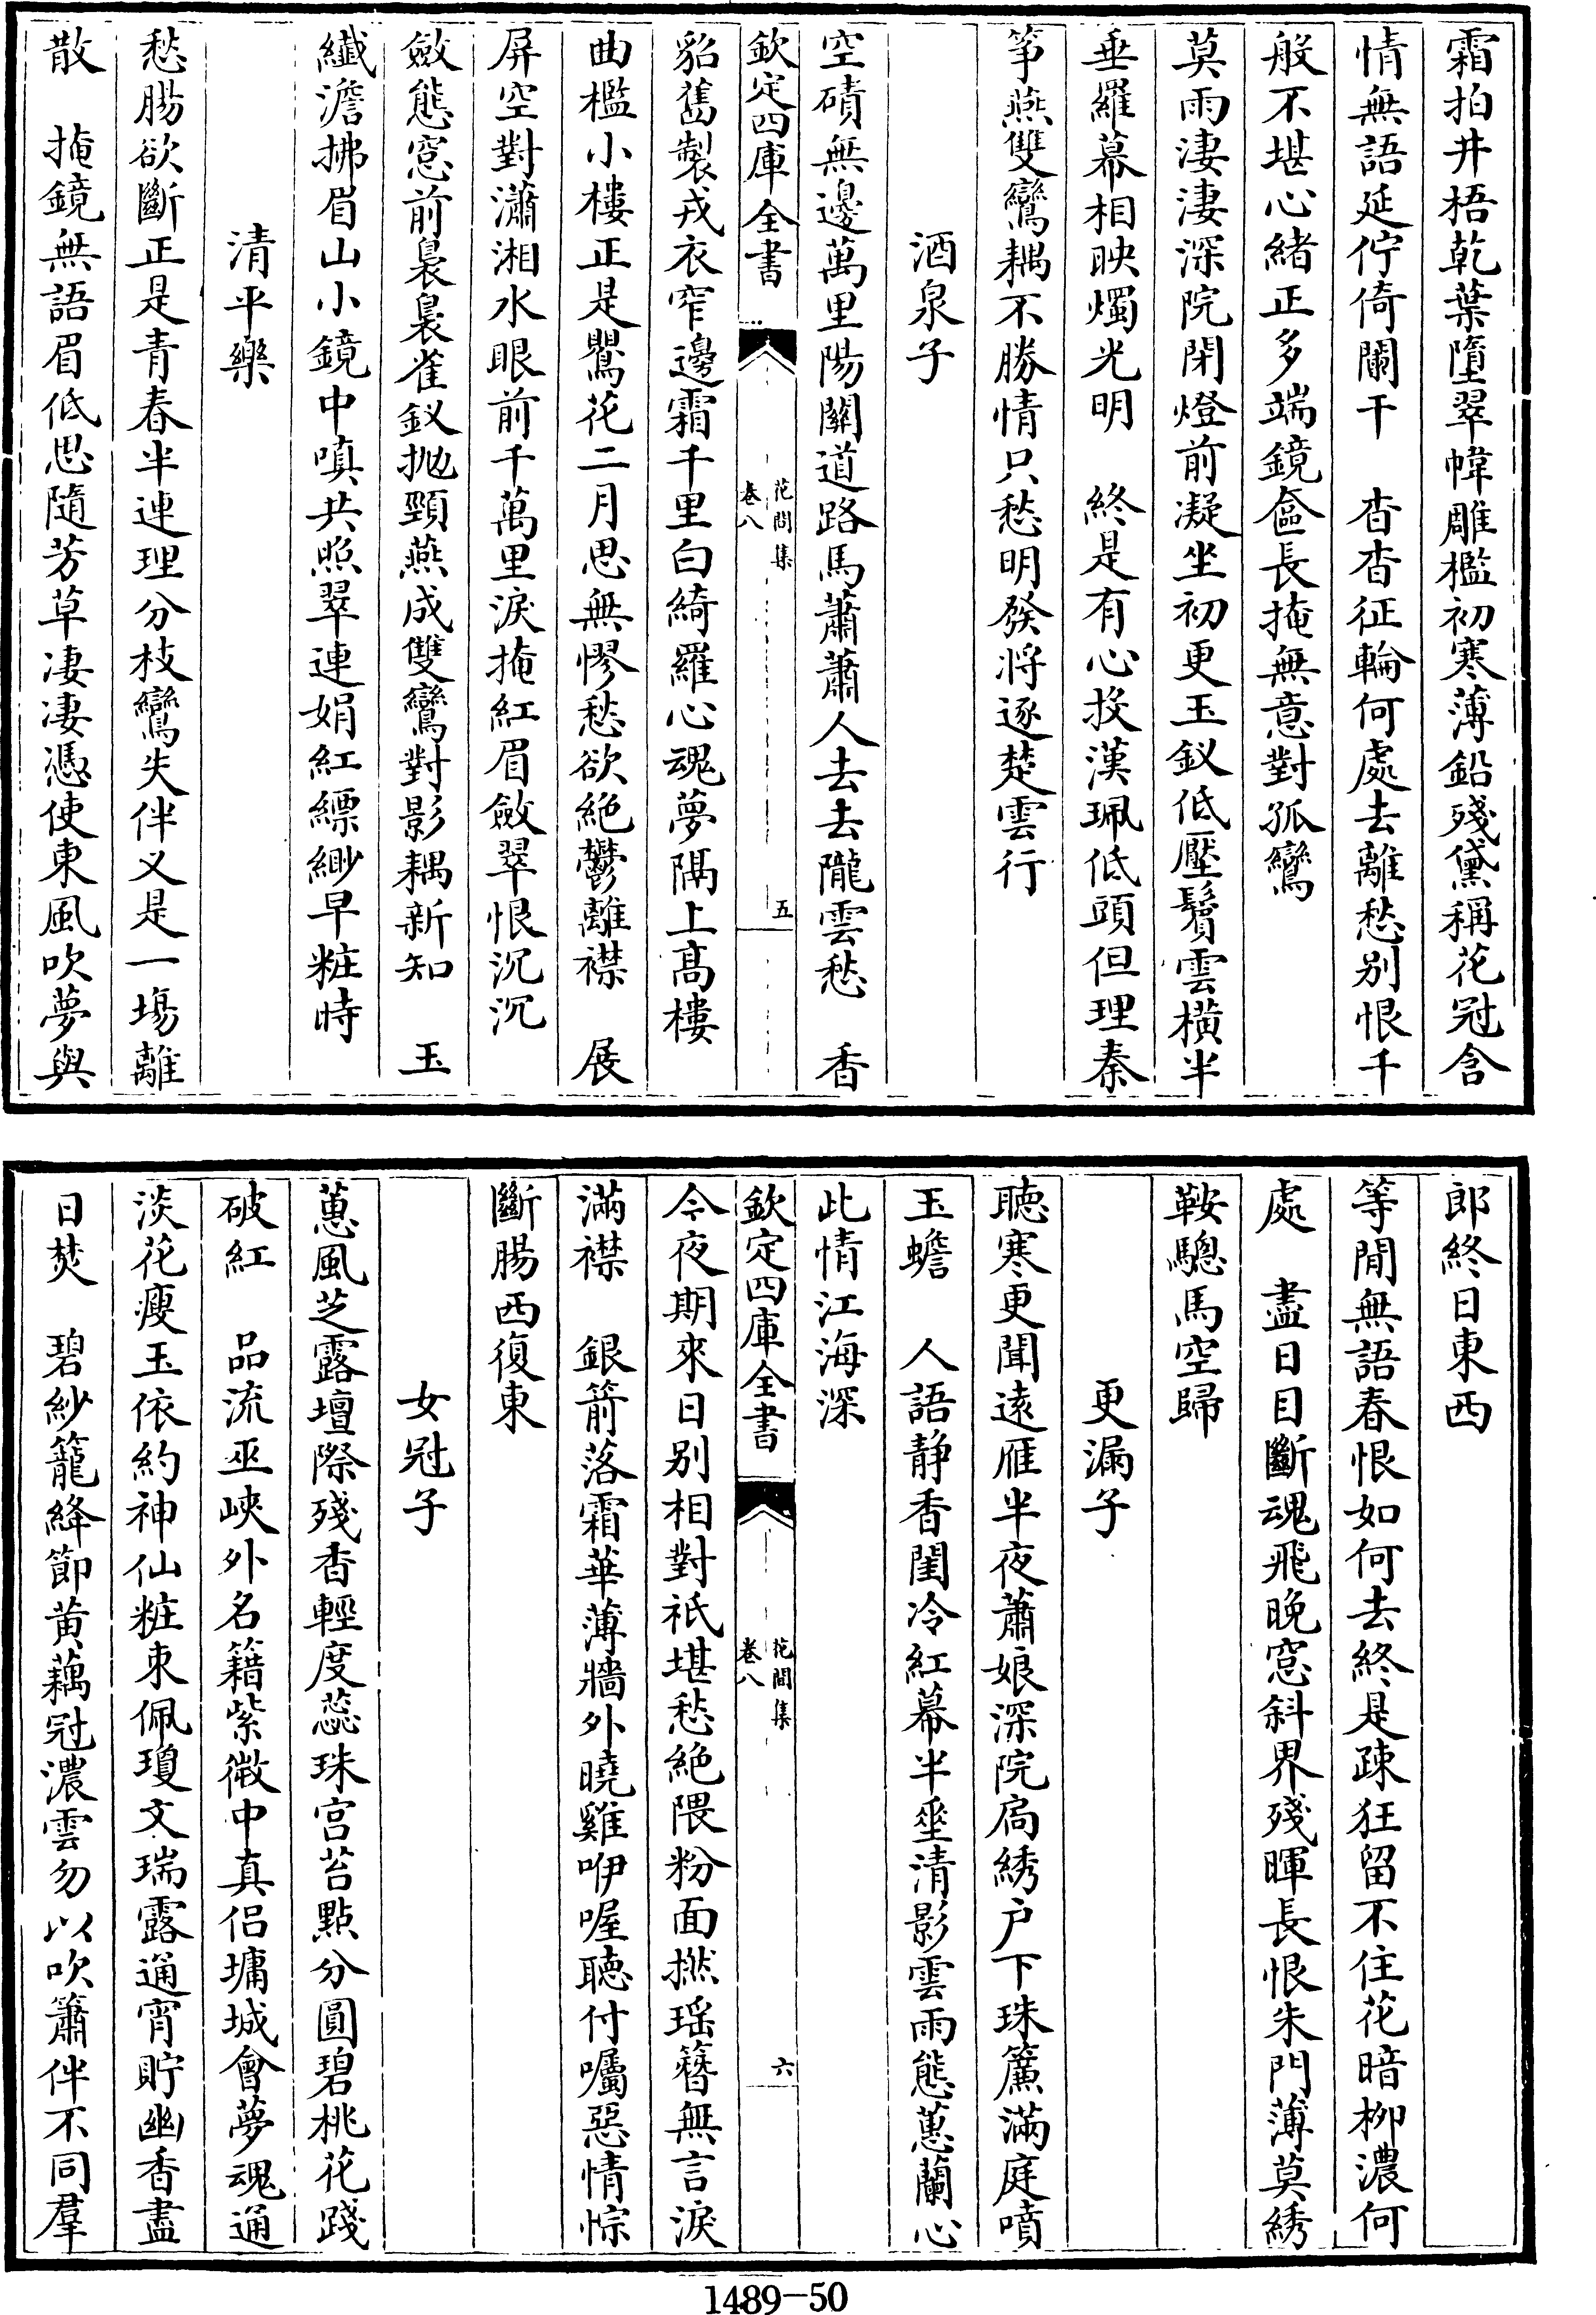 霜拍井梧乾葉墮翠幃雕檻初寒薄鉛殘黛稱花冠含
情無語延佇倚闌干　杳杳征輪何處去離愁别恨千
般不堪心緒正多端鏡奩長掩無意對孤鸞
莫雨淒淒深院閉燈前凝坐初更玉釵低壓鬢雲橫半
垂羅幕相映燭光明　終是有心投漢珮低頭但理秦
筝燕雙鸞耦不勝情只愁明發將逐楚雲行
酒泉子
空磧無邊萬里陽關道路馬蕭蕭人去去隴雲愁　香
欽定四庫全書
花間集
卷八
五
貂舊製戎衣窄邊霜千里白綺羅心魂夢隔上高樓
曲檻小樓正是鸎花二月思無憀愁欲絶鬱離襟　展
屏空對瀟湘水眼前千萬里淚掩紅眉斂翠恨沉沉
斂態窓前裊裊雀釵抛頸燕成雙鸞對影耦新知　玉
纖澹拂眉山小鏡中嗔共照翠連娟紅縹緲早粧時
清平樂
愁腸欲斷正是青春半連理分枝鸞失伴又是一場離
散　掩鏡無語眉低思隨芳草淒淒憑使東風吹夢與
郎終日東西
等閒無語春恨如何去終是疎狂留不住花暗柳濃何
處　盡日目斷魂飛晚窓斜界殘暉長恨朱門薄莫綉
鞍驄馬空歸
更漏子
聽寒更聞遠雁半夜蕭娘深院扃綉户下珠簾滿庭噴
玉蟾　人語靜香閨冷紅幕半垂清影雲雨態蕙蘭心
此情江海深
欽定四庫全書
花間集
卷八
六
今夜期來日别相對祇堪愁絶隈粉面撚瑶簪無言淚
滿襟　銀箭落霜華薄牆外曉雞咿喔聽付囑惡情悰
斷腸西復東
女冠子
蕙風芝露壇際殘香輕度蕊珠宫苔點分圓碧桃花踐
破紅　品流巫峽外名籍紫微中真侣墉城會夢魂通
淡花瘦玉依約神仙粧束佩瓊文瑞露通宵貯幽香盡
日焚　碧紗籠絳節黄藕冠濃雲勿以吹簫伴不同羣
1489-50